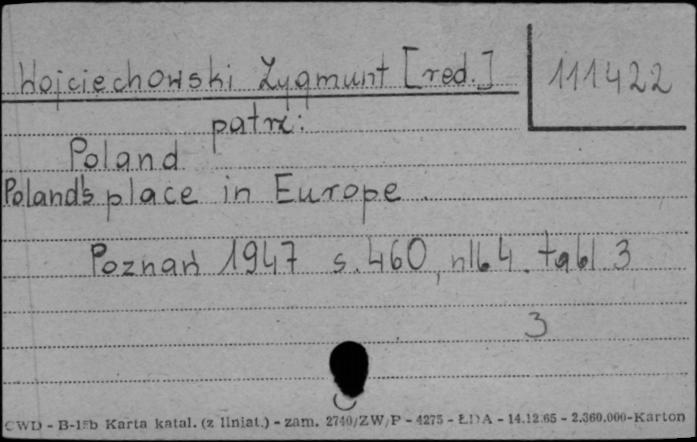 Wojciechowski Zygmunt [red.]
111422
patrz:
Poland
Poland's place in Europe.
Poznań 1947 s. 460, nlb 4. tabl. 3
3
CWD - B-15b Karta katal. (z liniat.) - zam. 2740/ZW/P - 4275 - ŁDA - 14.12.65 - 2.360.000-Karton